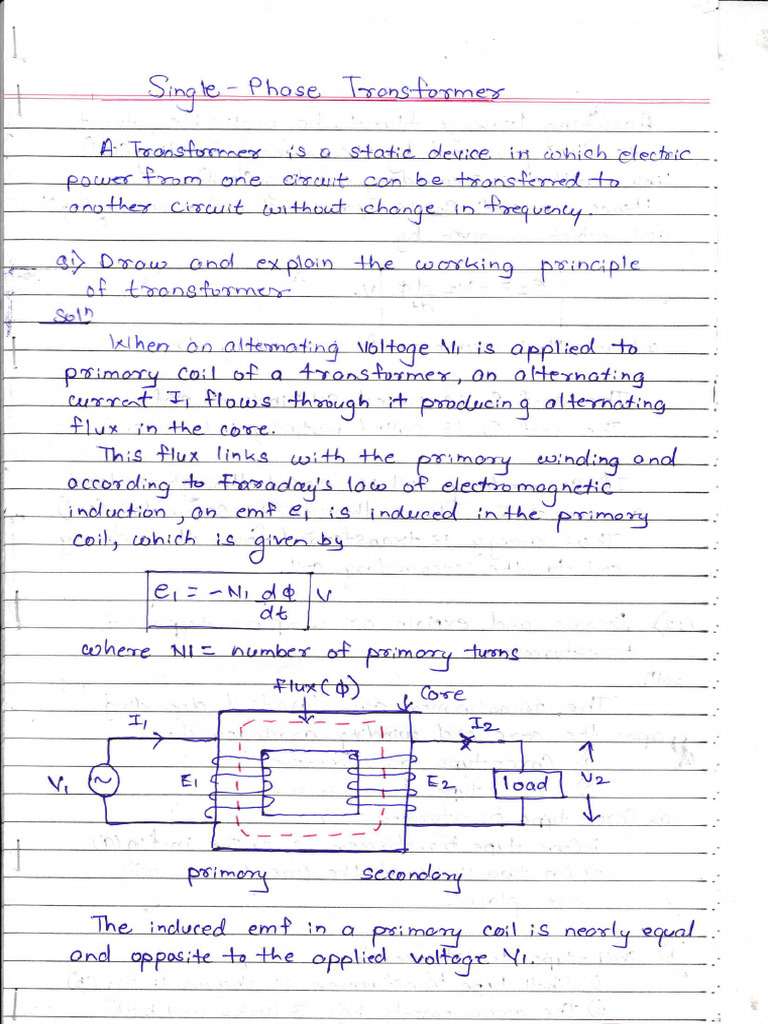 Single-Phase Transformer
A Transformer is a static device in which electric
power from one circuit can be transferred to
another circuit without change in frequency.
Q1) Draw and explain the working principle
of transformer
Solⁿ
When an alternating voltage V₁ is applied to
primary coil of a transformer, an alternating
current I₁ flows through it producing alternating
flux in the core.
This flux links with the primary winding and
according to Faraday's law of electromagnetic
induction, an emf e₁ is induced in the primary
coil, which is given by
e₁ = -N₁ dΦ/dt V
where N1 = number of primary turns
flux(Φ)
Core
I₁
I₂
V₁
~
E₁
E₂
load
V₂
primary secondary
The induced emf in a primary coil is nearly equal
and opposite to the applied voltage V₁.